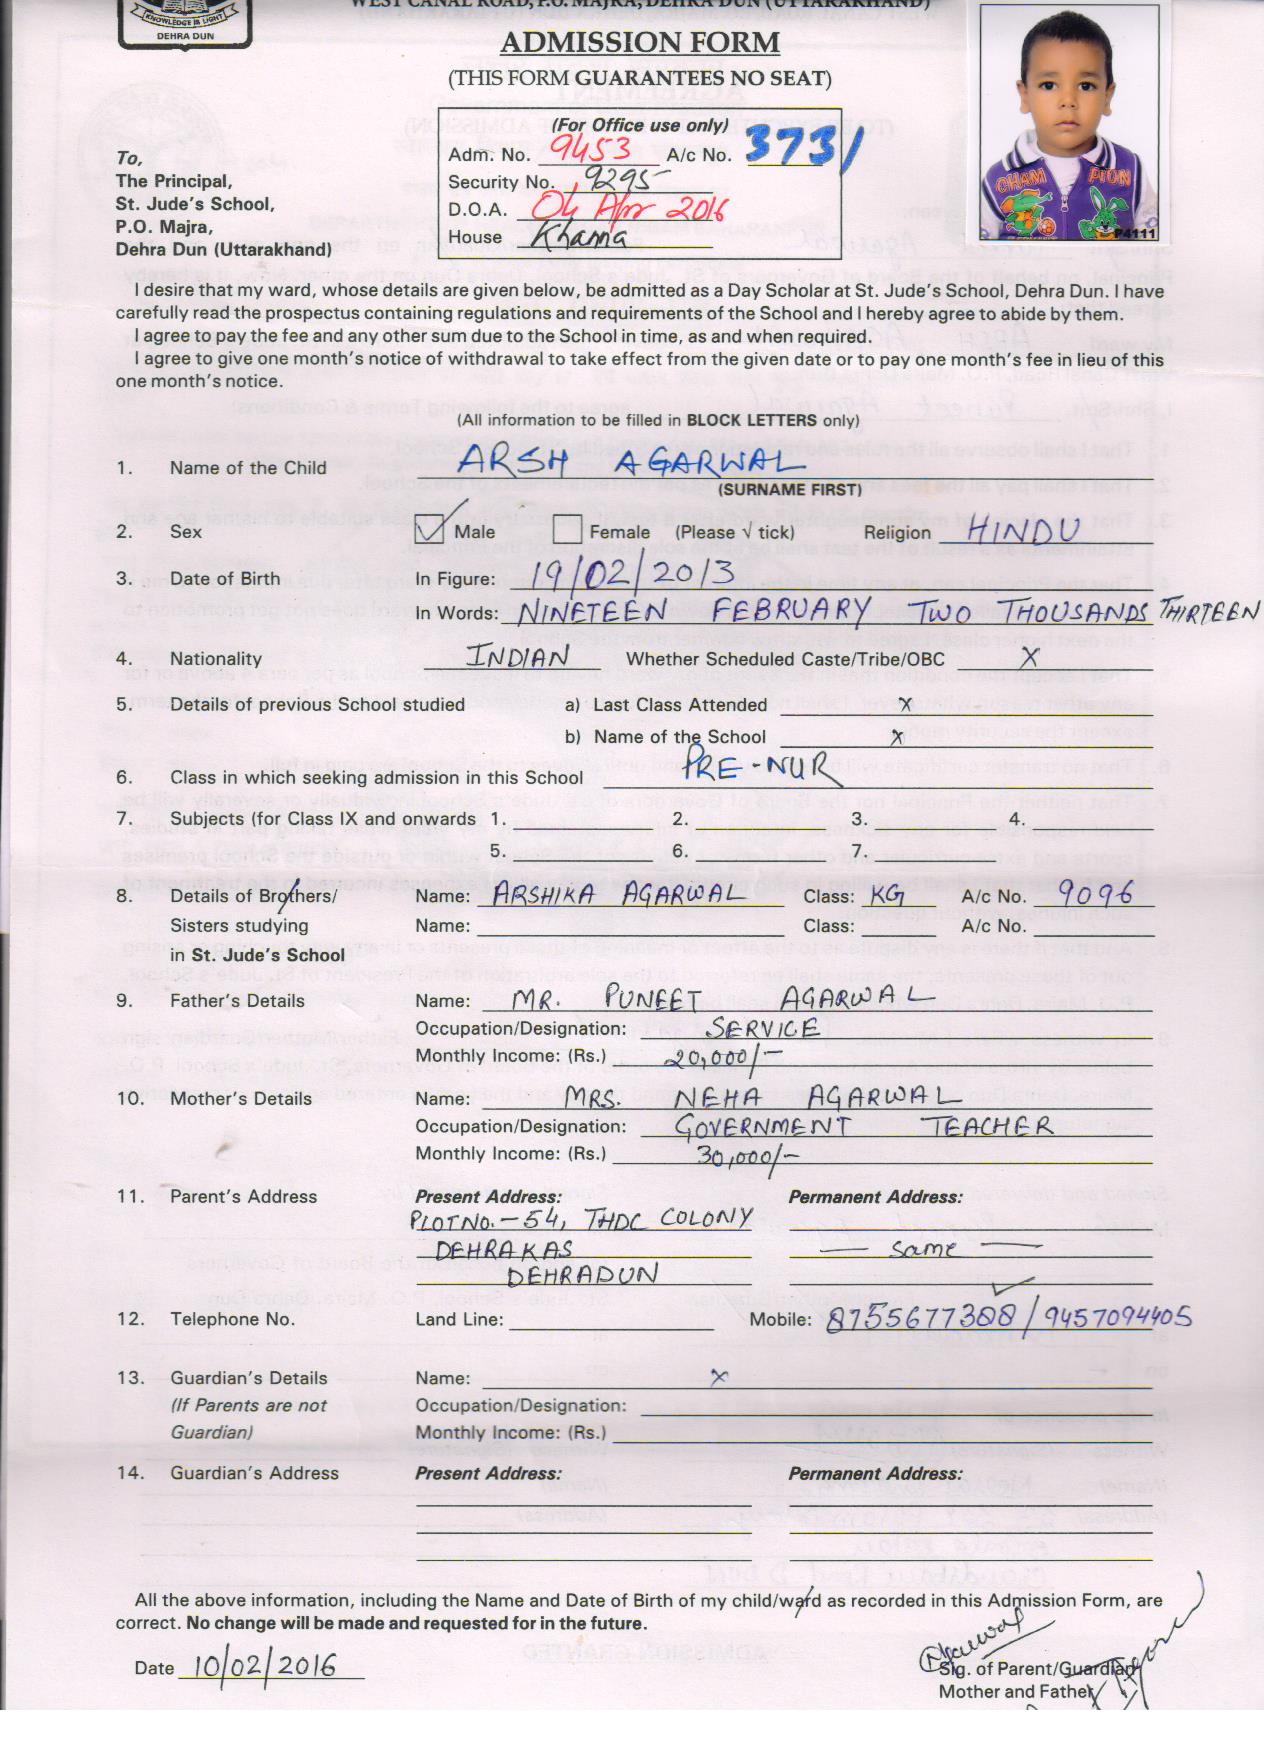 WEST CANAL ROAD, P.O. MAJRA, DEHRA DUN (UTTARAKHAND)
KNOWLEDGE IS LIGHT
DEHRA DUN
ADMISSION FORM
(THIS FORM GUARANTEES NO SEAT)
(For Office use only)
Adm. No. 9453 A/c No. 3731
Security No. 9295
D.O.A. 04 Apr 2016
House Khama
CHAM PION
P4111
To,
The Principal,
St. Jude's School,
P.O. Majra,
Dehra Dun (Uttarakhand)
I desire that my ward, whose details are given below, be admitted as a Day Scholar at St. Jude's School, Dehra Dun. I have
carefully read the prospectus containing regulations and requirements of the School and I hereby agree to abide by them.
I agree to pay the fee and any other sum due to the School in time, as and when required.
I agree to give one month's notice of withdrawal to take effect from the given date or to pay one month's fee in lieu of this
one month's notice.
(All information to be filled in BLOCK LETTERS only)
1. Name of the Child ARSH AGARWAL
(SURNAME FIRST)
2. Sex Male Female (Please √ tick) Religion HINDU
3. Date of Birth In Figure: 19/02/2013
In Words: NINETEEN FEBRUARY TWO THOUSANDS THIRTEEN
4. Nationality INDIAN Whether Scheduled Caste/Tribe/OBC X
5. Details of previous School studied a) Last Class Attended X
b) Name of the School X
6. Class in which seeking admission in this School PRE-NUR
7. Subjects (for Class IX and onwards 1. 2. 3. 4.
5. 6. 7.
8. Details of Brothers/ Name: ARSHIKA AGARWAL Class: KG A/c No. 9096
Sisters studying Name: Class: A/c No.
in St. Jude's School
9. Father's Details Name: MR. PUNEET AGARWAL
Occupation/Designation: SERVICE
Monthly Income: (Rs.) 20,000/-
10. Mother's Details Name: MRS. NEHA AGARWAL
Occupation/Designation: GOVERNMENT TEACHER
Monthly Income: (Rs.) 30,000/-
11. Parent's Address Present Address: Permanent Address:
PLOT NO.-54, THDC COLONY
DEHRAKAS — same —
DEHRADUN
12. Telephone No. Land Line: Mobile: 8755677388/9457094405
13. Guardian's Details Name: X
(If Parents are not Occupation/Designation:
Guardian) Monthly Income: (Rs.)
14. Guardian's Address Present Address: Permanent Address:
All the above information, including the Name and Date of Birth of my child/ward as recorded in this Admission Form, are
correct. No change will be made and requested for in the future.
Date 10/02/2016
Sig. of Parent/Guardian
Mother and Father